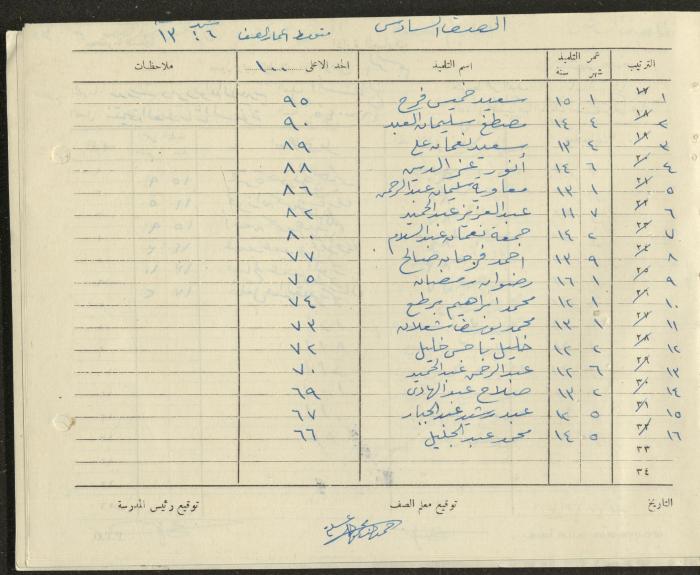 الصف السادس    متوسط اعمار الصف    شهر سنة ٦ ١٣
الترتيب    عمر التلميذ شهر سنة    اسم التلميذ    الحد الاعلى ١٠٠    ملاحظات
١    ١    ١٥    سعيد خميس فرج    ٩٥
٢    ٤    ١٤    مصطفى سليمان العبد    ٩٠
٣    ٤    ١٣    سعيد نعمان علي    ٨٩
٤    ٦    ١٤    أنور عز الدين    ٨٨
٥    ١    ١٣    معاوية سليمان عبد الرحمن    ٨٦
٦    ٧    ١١    عبد العزيز عبد الحميد    ٨٢
٧    ٢    ١٤    جمعة نعمان عبد السلام    ٨٠
٨    ٩    ١٣    احمد فرحان صالح    ٧٧
٩    ١    ١٦    رضوان رمضان    ٧٥
١٠    ١    ١٢    محمد ابراهيم    ٧٤
١١    ١    ١٣    محمد يوسف شعلان    ٧٣
١٢    ٢    ١٢    خليل خليل    ٧٢
١٣    ٦    ١٢    عبد الرحمن عبد الحميد    ٧٠
١٤    ٢    ١٣    صلاح عبد الهادي    ٦٩
١٥    ٥    ١٣    عبد رشيد عبد الجبار    ٦٧
١٦    ٥    ١٤    محمد عبد الجليل    ٦٦
٣٣
٣٤
التاريخ    توقيع معلم الصف    توقيع رئيس المدرسة